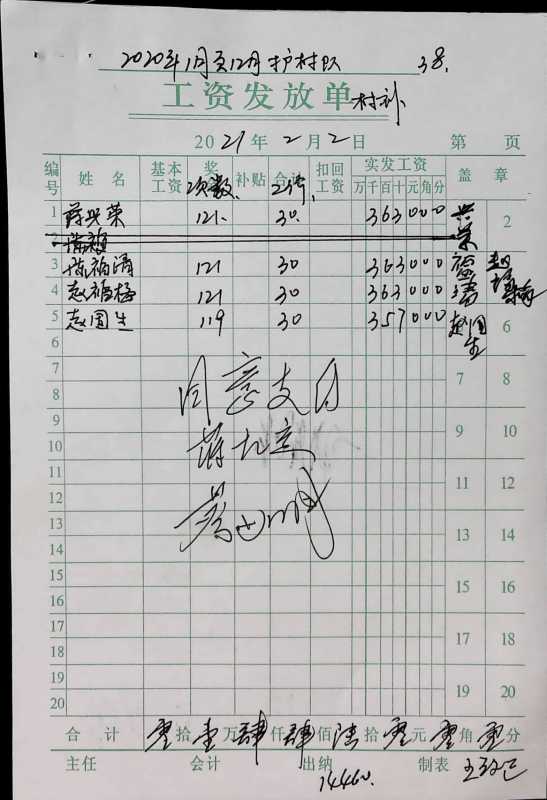 2020年1月至12月护村队 38.
工资发放单 村补
2021年2月2日 第 页
编号 姓名 基本工资 奖 次数 补贴 合计 扣回工资 实发工资 万千百十元角分 盖章
1 蒋兴荣 121. 30. 363000 兴荣 2
2
3 陈福清 121 30 363000 福清
4 赵福杨 121 30 363000
5 赵国生 119 30 357000 赵国生 6
6
7 7 8
8 同意支付
9 9 10
10 蒋九
11 11 12
12
13 13 14
14
15 15 16
16
17 17 18
18
19 19 20
20
合计 零拾壹万肆仟肆佰陆拾零元零角零分
主任 会计 出纳 制表
14460.